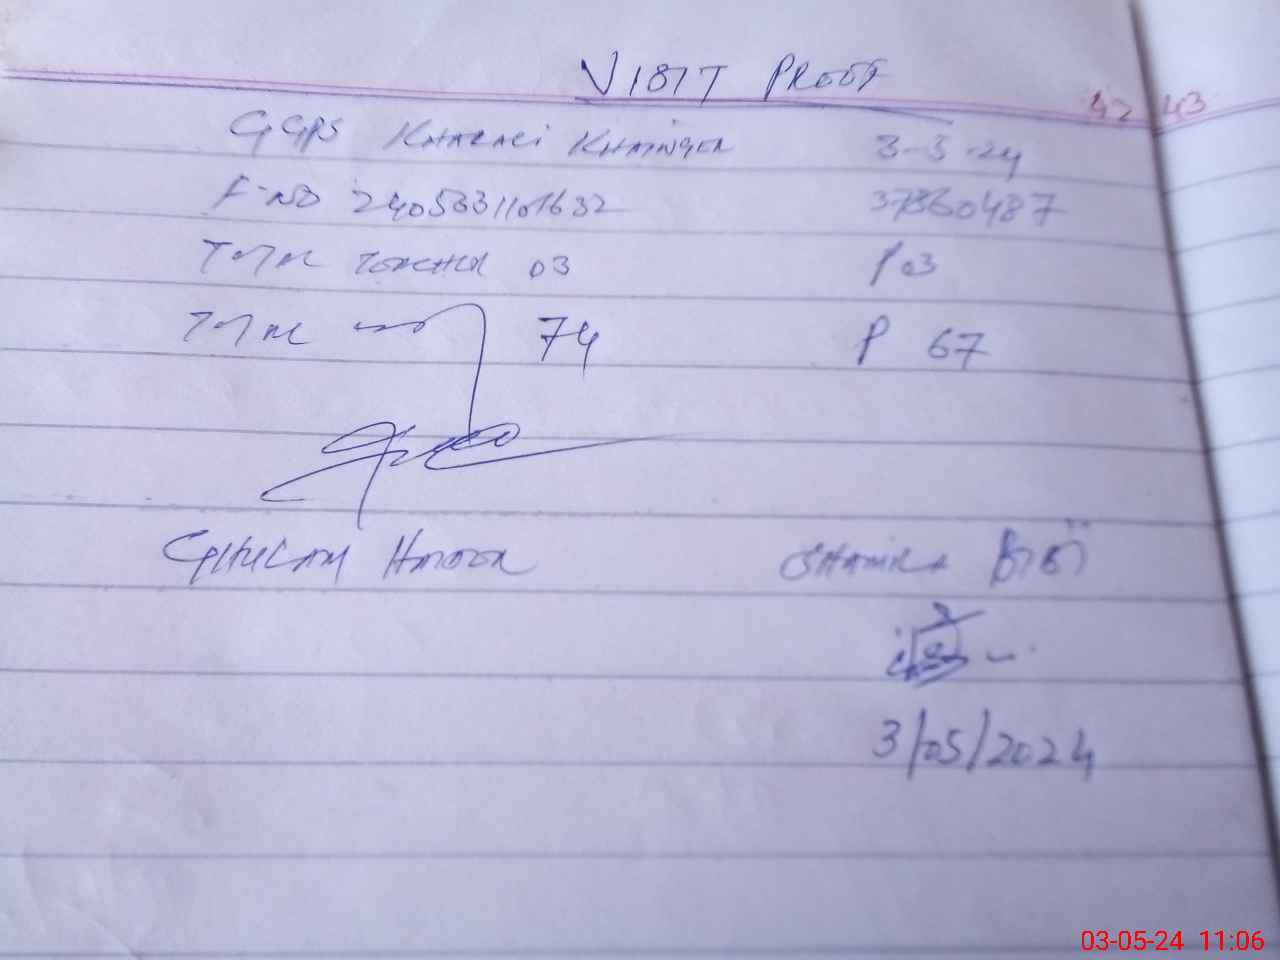 VISIT PROOF
42 43
GGPS KHARALI KHAINGER 3-5-24
F-NO 240533101632 37360487
TOTAL TEACHER 03 P 03
TOTAL 74 P 67
GHULAM HAIDER SHAMIRA BIBI
3/05/2024
03-05-24 11:06